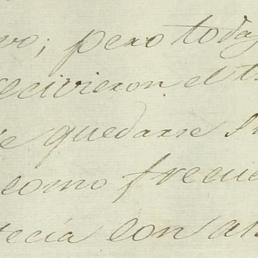 vo; pero toda
recivieron el t
e quedarse s
como frecue
recía con an